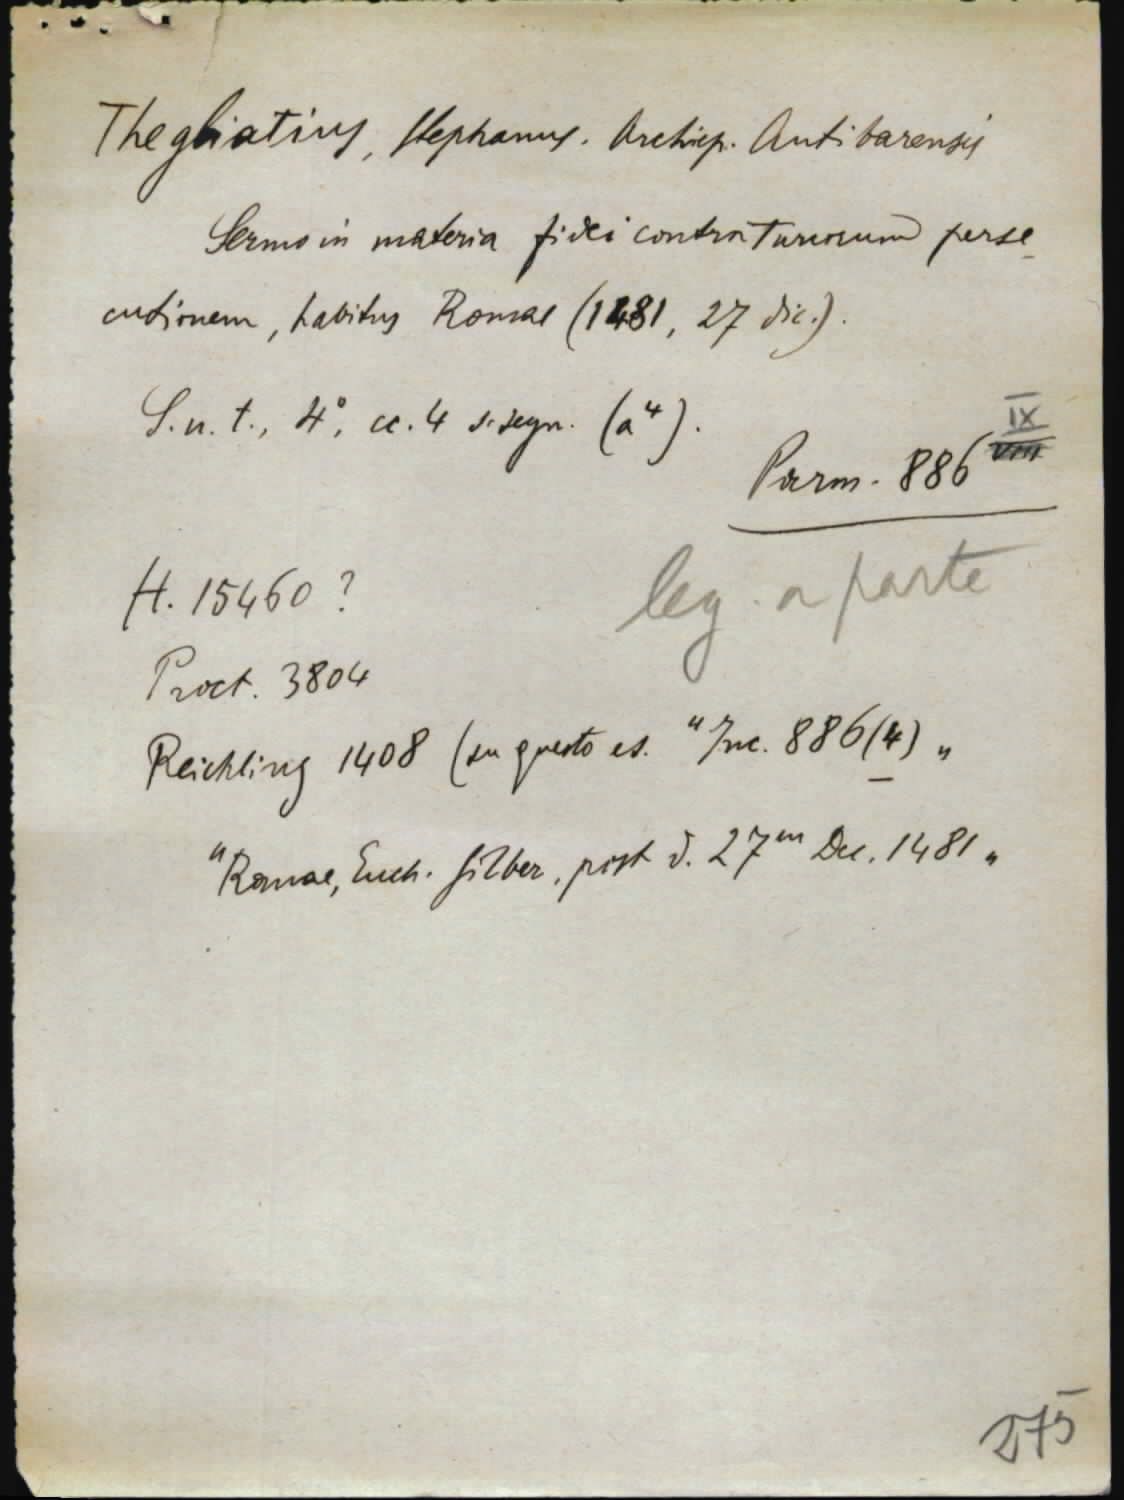 Thegliatius, Stephanus. Archiep. Antibarensis
Sermo in materia fidei contra Turcorum perse-
cutionem, habitus Romae (1481, 27 dic.).
S. n. t., 4°, cc. 4 s. segn. (a⁴).
IX
VIII
Parm. 886
leg. a parte
H. 15460 ?
Proct. 3804
Reichling 1408 (su questo es. "Inc. 886(4) „
"Romae, Euch. Silber, post d. 27ᵐ Dec. 1481 „
275